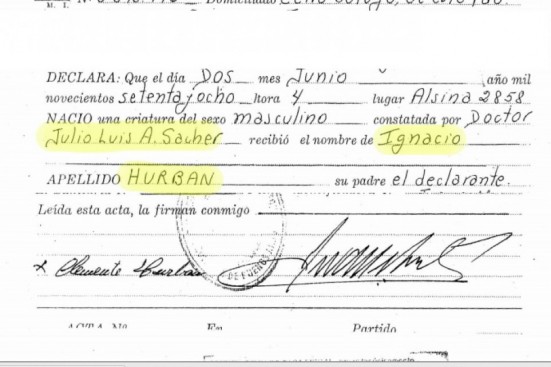 DECLARA: Que el día DOS mes Junio año mil
novecientos setentayocho hora 4 lugar Alsina 2858
NACIO una criatura del sexo masculino constatada por Doctor
Julio Luis A. Sacher recibió el nombre de Ignacio
APELLIDO HURBAN su padre el declarante.
Leída esta acta, la firman conmigo
x Clemente Hurban
DE
ACTA No En Partido